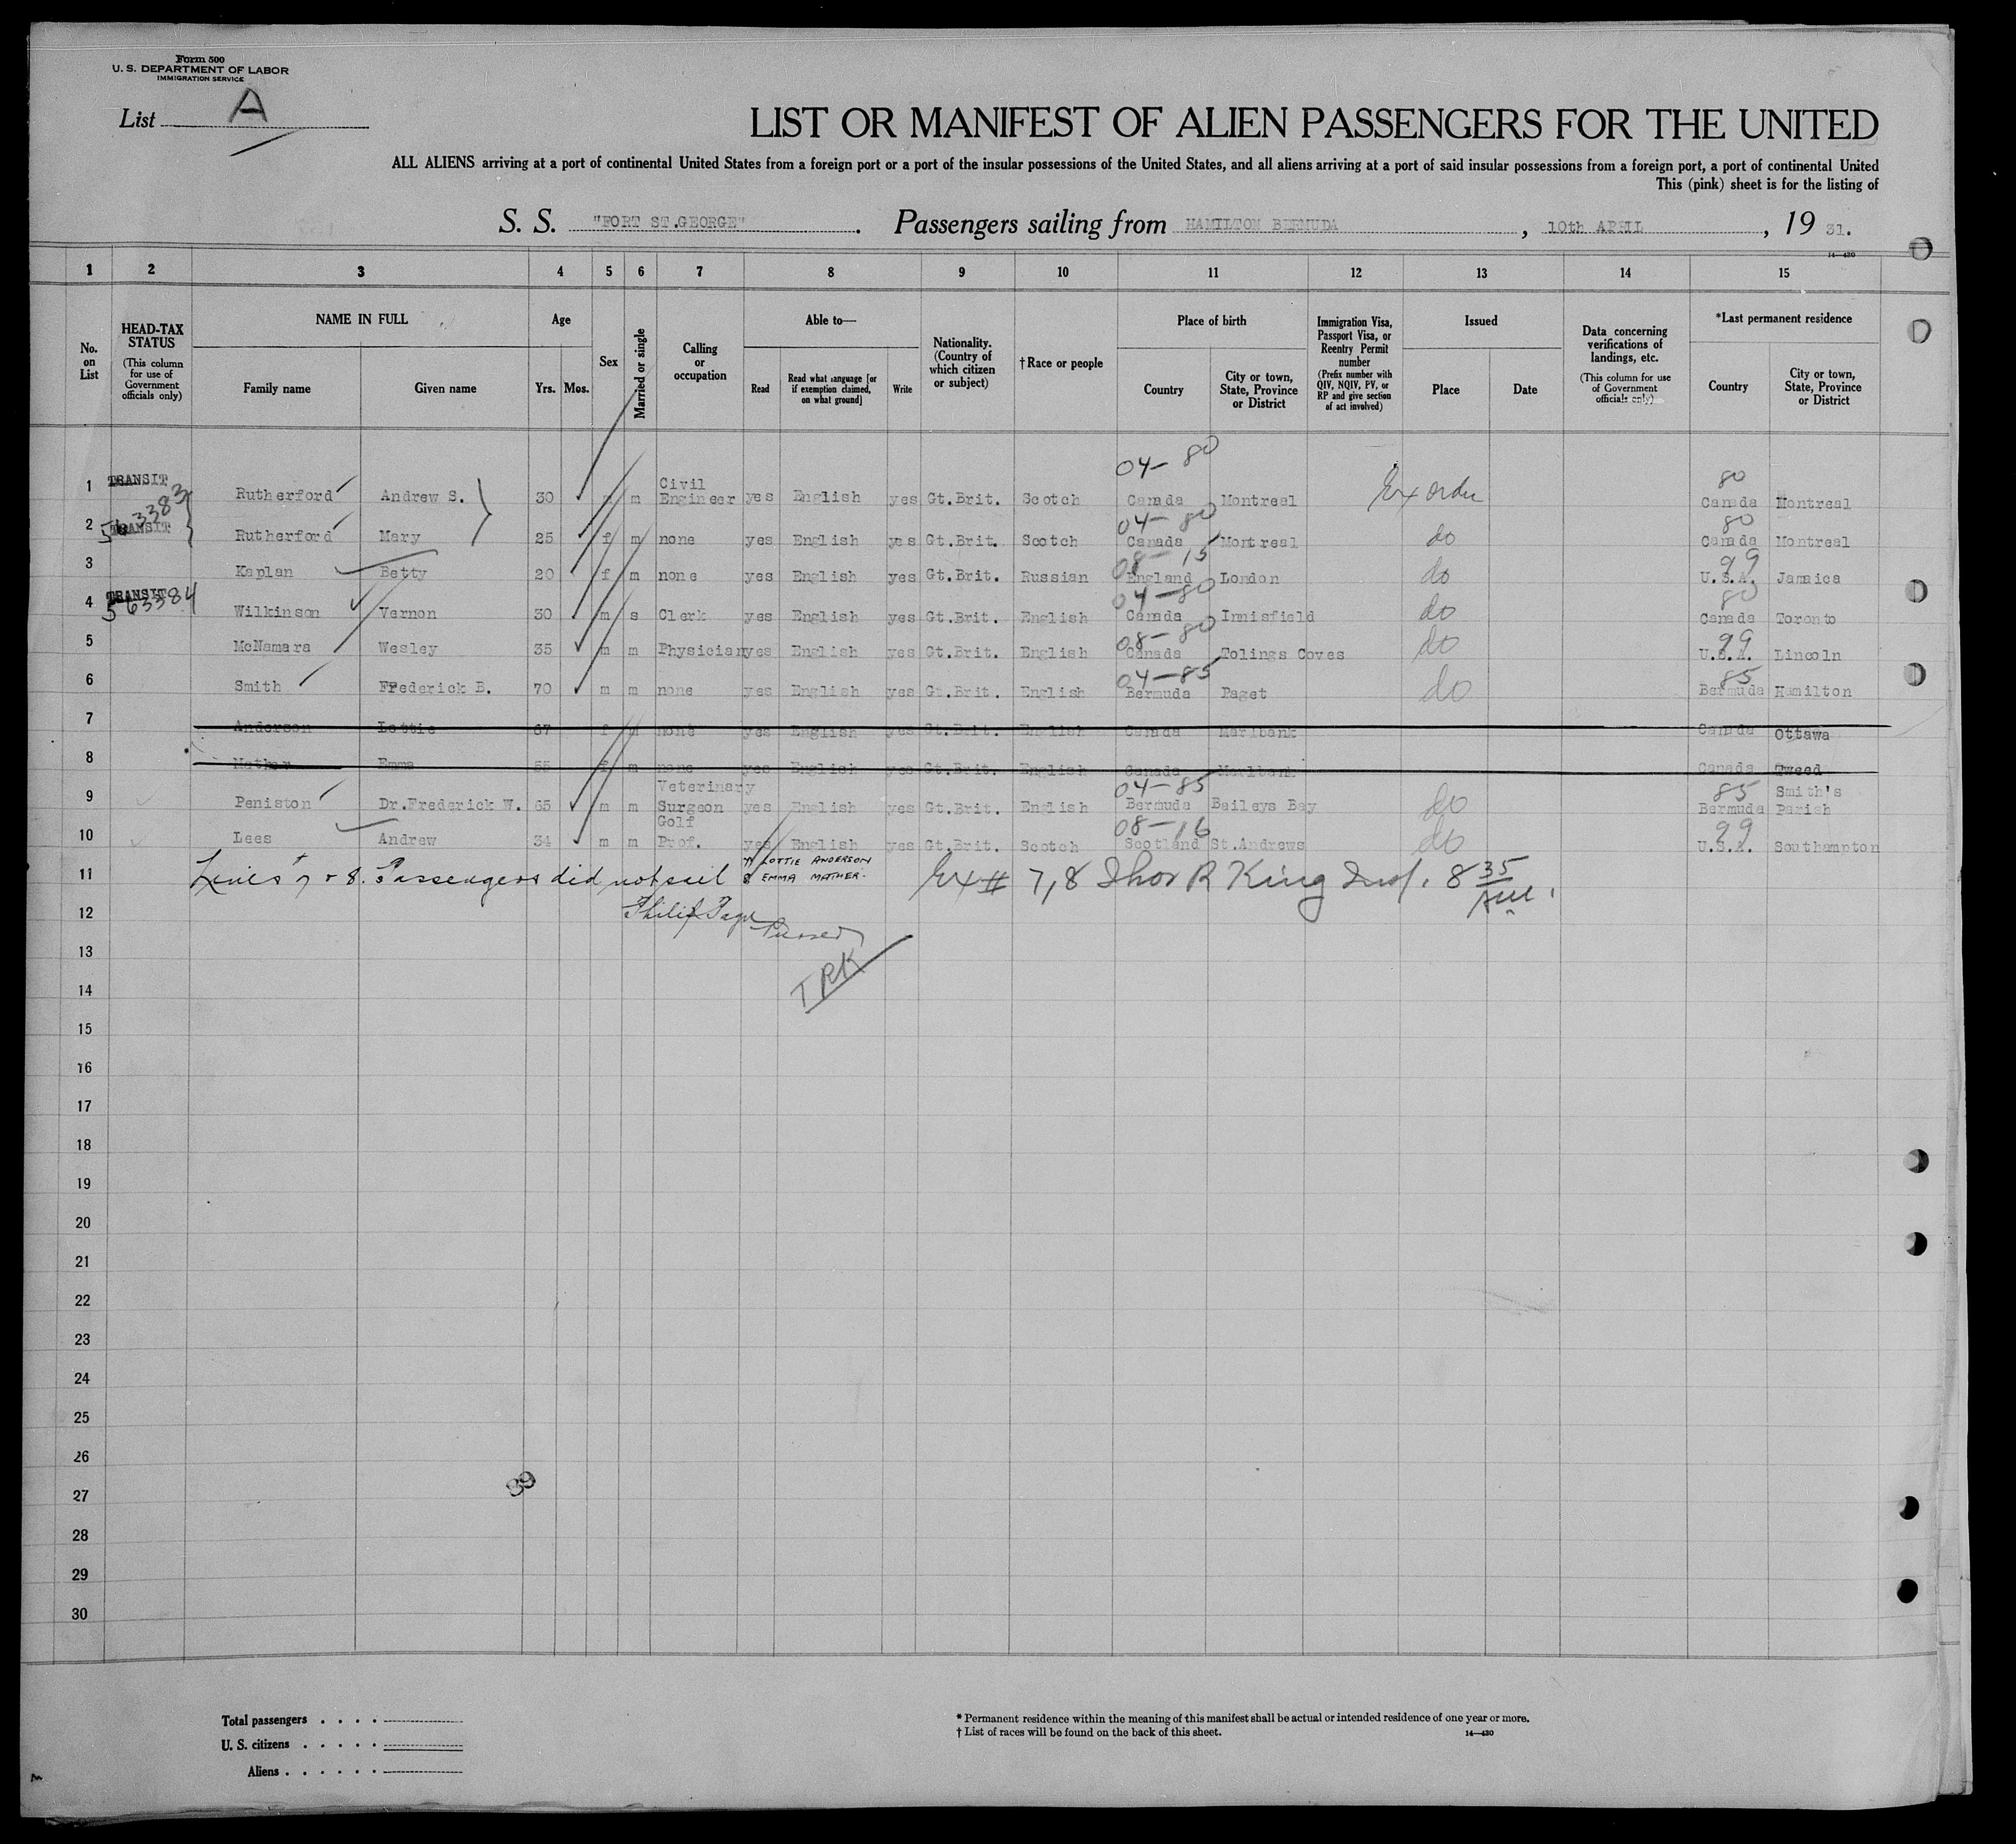 Form 500
U. S. DEPARTMENT OF LABOR
IMMIGRATION SERVICE
List A
LIST OR MANIFEST OF ALIEN PASSENGERS FOR THE UNITED
ALL ALIENS arriving at a port of continental United States from a foreign port or a port of the insular possessions of the United States, and all aliens arriving at a port of said insular possessions from a foreign port, a port of continental United
This (pink) sheet is for the listing of
S. S. "FORT ST.GEORGE". Passengers sailing from HAMILTON BERMUDA, 10th APRIL, 19 31.
14—430
1 2 3 4 5 6 7 8 9 10 11 12 13 14 15
No. on List
HEAD-TAX STATUS (This column for use of Government officials only)
NAME IN FULL
Family name
Given name
Age
Yrs. Mos.
Sex
Married or single
Calling or occupation
Able to—
Read
Read what language [or if exemption claimed, on what ground]
Write
Nationality. (Country of which citizen or subject)
†Race or people
Place of birth
Country
City or town, State, Province or District
Immigration Visa, Passport Visa, or Reentry Permit number (Prefix number with QIV, NQIV, PV, or RP and give section of act involved)
Issued
Place
Date
Data concerning verifications of landings, etc. (This column for use of Government officials only)
*Last permanent residence
Country
City or town, State, Province or District
04-80 80
1 TRANSIT Rutherford Andrew S. 30 m m Civil Engineer yes English yes Gt.Brit. Scotch Canada Montreal Ex order Canada Montreal
563383
04-80 80
2 TRANSIT Rutherford Mary 25 f m none yes English yes Gt.Brit. Scotch Canada Montreal do Canada Montreal
08-15 99
3 Kaplan Betty 20 f m none yes English yes Gt.Brit. Russian England London do U.S.A. Jamaica
04-80 80
4 TRANSIT 563384 Wilkinson Vernon 30 m s Clerk yes English yes Gt.Brit. English Canada Innisfield do Canada Toronto
08-80 99
5 McNamara Wesley 35 m m Physician yes English yes Gt.Brit. English Canada Tolings Coves do U.S.A. Lincoln
04-85 85
6 Smith Frederick B. 70 m m none yes English yes Gt.Brit. English Bermuda Paget do Bermuda Hamilton
7 Anderson Lottie 67 f none yes English yes Gt.Brit. English Canada Marlbank Canada Ottawa
8 Mather Emma 55 f m none yes English yes Gt.Brit. English Canada Marlbank Canada Tweed
04-85 85
9 Peniston Dr.Frederick W. 65 m m Veterinary Surgeon yes English yes Gt.Brit. English Bermuda Baileys Bay do Bermuda Smith's Parish
08-16 99
10 Lees Andrew 34 m m Golf Prof. yes English yes Gt.Brit. Scotch Scotland St.Andrews do U.S.A. Southampton
11 Lines 7 + 8. Passengers did not sail 7 LOTTIE ANDERSON 8 EMMA MATHER. Ex # 7,8 Thos R King Insp. 8 35 AM.
12 Philip Purser
13
TRK
14
15
16
17
18
19
20
21
22
23
24
25
26
27
28
29
30
39
Total passengers . . . .
U. S. citizens . . . . .
Aliens . . . . . .
* Permanent residence within the meaning of this manifest shall be actual or intended residence of one year or more.
† List of races will be found on the back of this sheet.
14—430